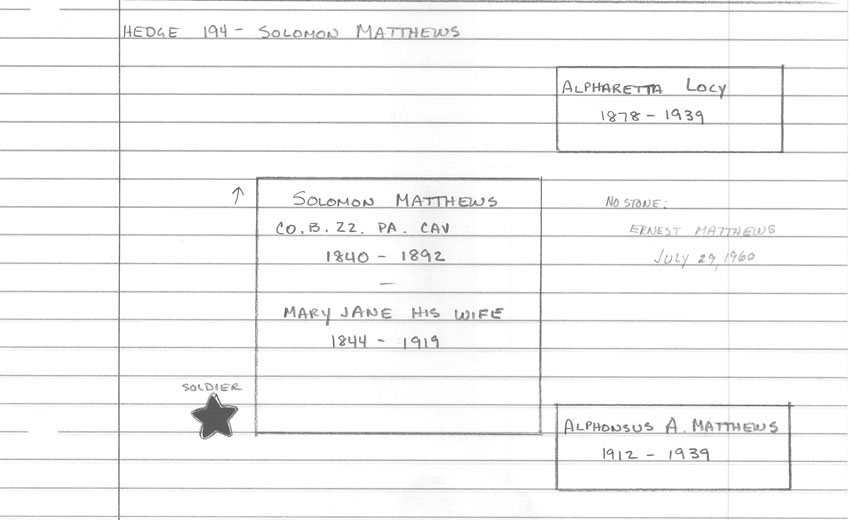 HEDGE 194 - SOLOMON MATTHEWS
ALPHARETTA LOCY
1878 - 1939
SOLOMON MATTHEWS
CO. B. 22. PA. CAV
1840 - 1892
—
MARY JANE HIS WIFE
1844 - 1919
NO STONE:
ERNEST MATTHEWS
JULY 29, 1960
SOLDIER
ALPHONSUS A. MATTHEWS
1912 - 1939